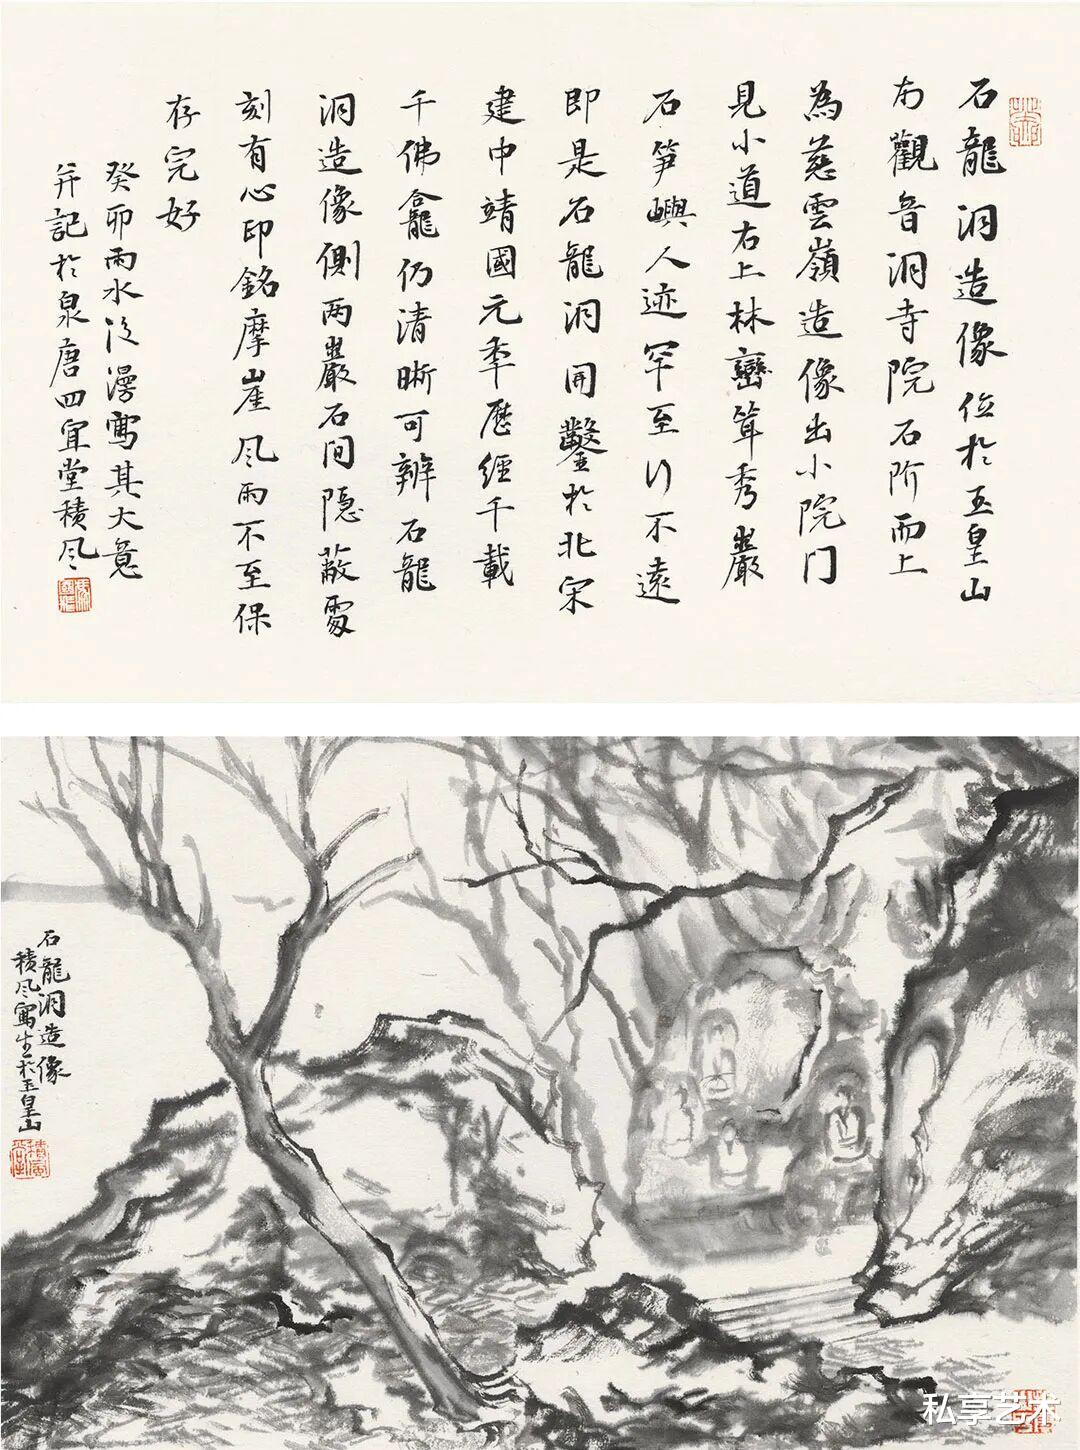 石龍洞造像位於玉皇山
南觀音洞寺院石阶而上
為慈雲嶺造像出小院门
見小道右上林巒耸秀巖
石笋嶼人迹罕至行不遠
即是石龍洞開鑿於北宋
建中靖國元年歷經千載
千佛龕仍清晰可辨石龍
洞造像側两巖石间隐蔽處
刻有心印銘摩崖风雨不至保
存完好
癸卯雨水後漫寫其大意
并記於泉唐四宜堂積风
石龍洞造像
積风寫生於玉皇山
私享艺术